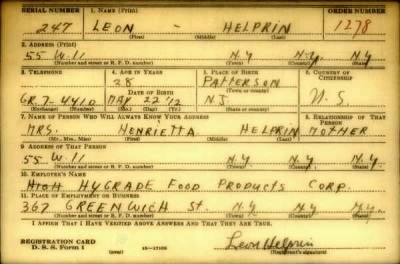 SERIAL NUMBER 1. NAME (Print) ORDER NUMBER
247 LEON - HELPRIN 1278
(First) (Middle) (Last)
2. ADDRESS (Print)
55 W. 11 N.Y. N.Y. N.Y
(Number and street or R. F. D. number) (Town) (County) (State)
3. TELEPHONE 4. AGE IN YEARS 5. PLACE OF BIRTH 6. COUNTRY OF CITIZENSHIP
28 PATTERSON
DATE OF BIRTH (Town or county)
GR. 7-4410 MAY 22 '12 N.J. U.S.
(Exchange) (Number) (Mo.) (Day) (Yr.) (State or country)
7. NAME OF PERSON WHO WILL ALWAYS KNOW YOUR ADDRESS 8. RELATIONSHIP OF THAT PERSON
MRS. HENRIETTA HELPRIN MOTHER
(Mr., Mrs., Miss) (First) (Middle) (Last)
9. ADDRESS OF THAT PERSON
55 W. 11 N.Y. N.Y. N.Y.
(Number and street or R. F. D. number) (Town) (County) (State)
10. EMPLOYER'S NAME
HIGH HYGRADE FOOD PRODUCTS CORP.
11. PLACE OF EMPLOYMENT OR BUSINESS
367 GREENWICH St. N.Y. N.Y. N.Y.
(Number and street or R. F. D. number) (Town) (County) (State)
I AFFIRM THAT I HAVE VERIFIED ABOVE ANSWERS AND THAT THEY ARE TRUE.
REGISTRATION CARD
D. S. S. Form 1 16-17105 Leon Helprin
(Registrant's signature)